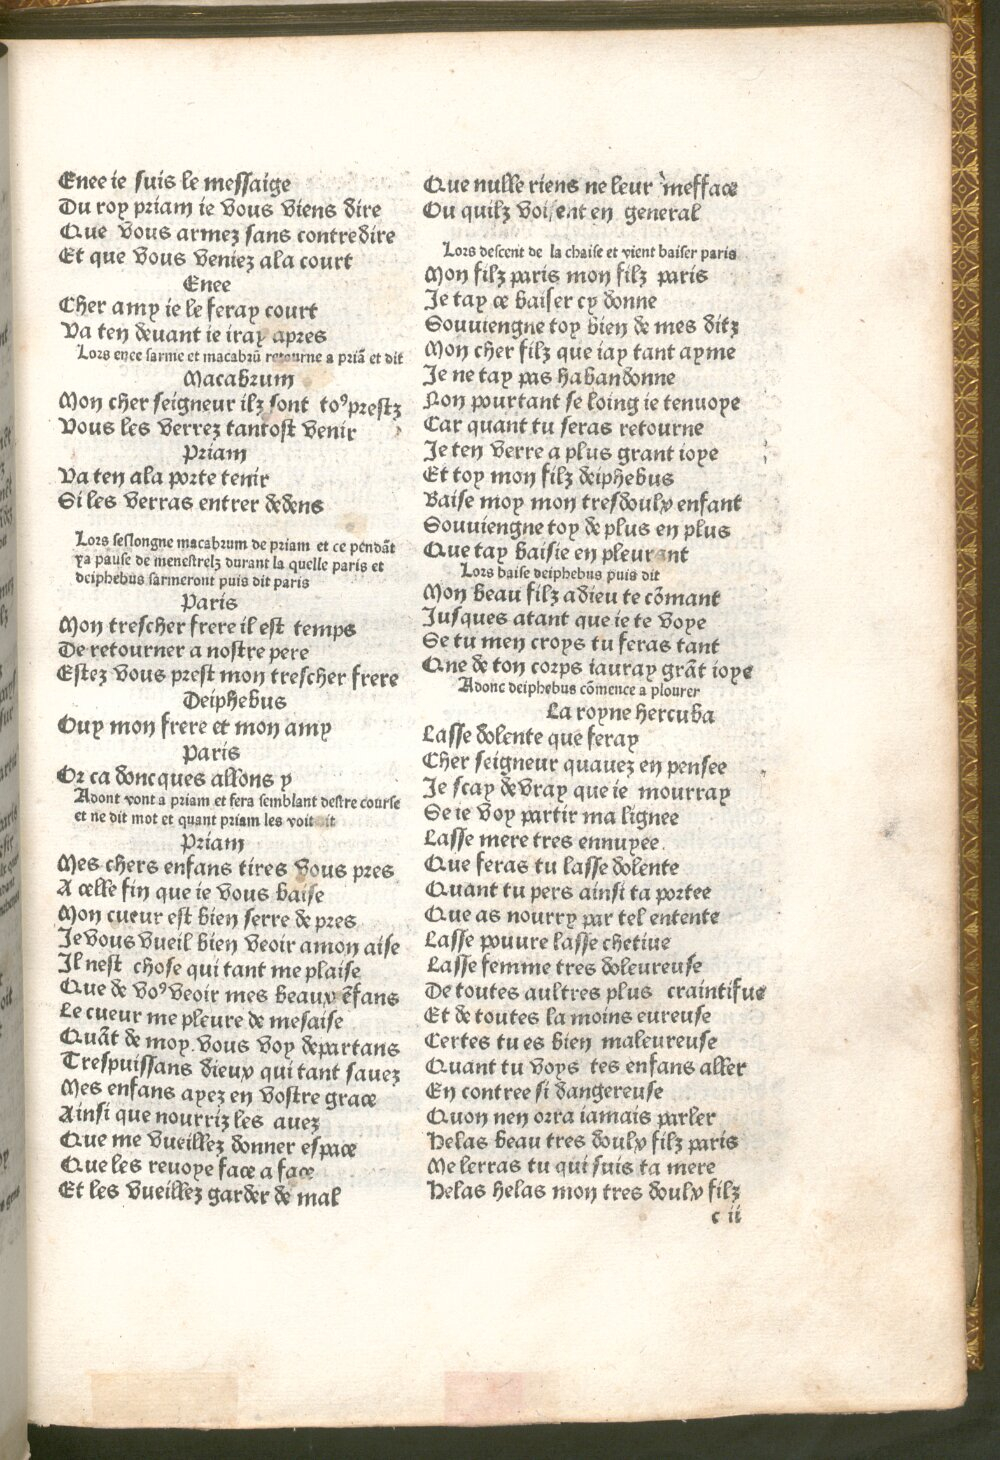 Enee ie suis le messaige
Du roy priam ie vous viens dire
Que vous armez sans contredire
Et que vous veniez ala court
Enee
Cher amy ie le feray court
Va ten devant ie iray apres
Lors enee sarme et macabrū retourne a priā et dit
Macabrum
Mon cher seigneur ilz sont toꝰprestz
Vous les verrez tantost venir
Priam
Va ten ala porte tenir
Si les verras entrer dedens
Lors seslongne macabrum de priam et ce pēdāt
ya pause de menestrelz durant la quelle paris et
deiphebus sarmeront puis dit paris
Paris
Mon trescher frere il est temps
De retourner a nostre pere
Estez vous prest mon trescher frere
Deiphebus
Ouy mon frere et mon amy
Paris
Or ca doncques allons y
Adont vont a priam et fera semblant destre course
et ne dit mot et quant priam les voit it
Priam
Mes chers enfans tires vous pres
A celle fin que ie vous baise
Mon cueur est bien serre de pres
Je vous vueil bien veoir amon aise
Il nest chose qui tant me plaise
Que de voꝰveoir mes beaux ēfans
Le cueur me pleure de mesaise
Quāt de moy vous voy departans
Trespuissans dieux qui tant sauez
Mes enfans ayez en vostre grace
Ainsi que nourriz les auez
Que me vueillez donner espace
Que les reuoye face a face
Et les vueillez garder de mal
Que nulle riens ne leur mefface
Ou quilz voisent en general
Lors descent de la chaise et vient baiser paris
Mon filz paris mon filz paris
Je tay ce baiser cy donne
Souuiengne toy bien de mes ditz
Mon cher filz que iay tant ayme
Je ne tay pas habandonne
Non pourtant se loing ie tenuoye
Car quant tu seras retourne
Je ten verre a plus grant ioye
Et toy mon filz deiphebus
Baise moy mon tresdoulx enfant
Souuiengne toy de plus en plus
Que tay baisie en pleurant
Lors baise deiphebus puis dit
Mon beau filz adieu te cōmant
Jusques atant que ie te voye
Se tu men croys tu feras tant
Que de ton corps iauray grāt ioye
Adonc deiphebus cōmence a plourer
La royne hercuba
Lasse dolente que feray
Cher seigneur quauez en pensee
Je scay de vray que ie mourray
Se ie voy partir ma lignee
Lasse mere tres ennuyee
Que feras tu lasse dolente
Quant tu pers ainsi ta portee
Que as nourry par tel entente
Lasse pouure lasse chetiue
Lasse femme tres doleureuse
De toutes aultres plus craintifue
Et de toutes la moins eureuse
Certes tu es bien maleureuse
Quant tu voys tes enfans aller
En contree si dangereuse
Quon nen orra iamais parler
Helas beau tres doulx filz paris
Me lerras tu qui suis ta mere
Helas helas mon tres doulx filz
c ii